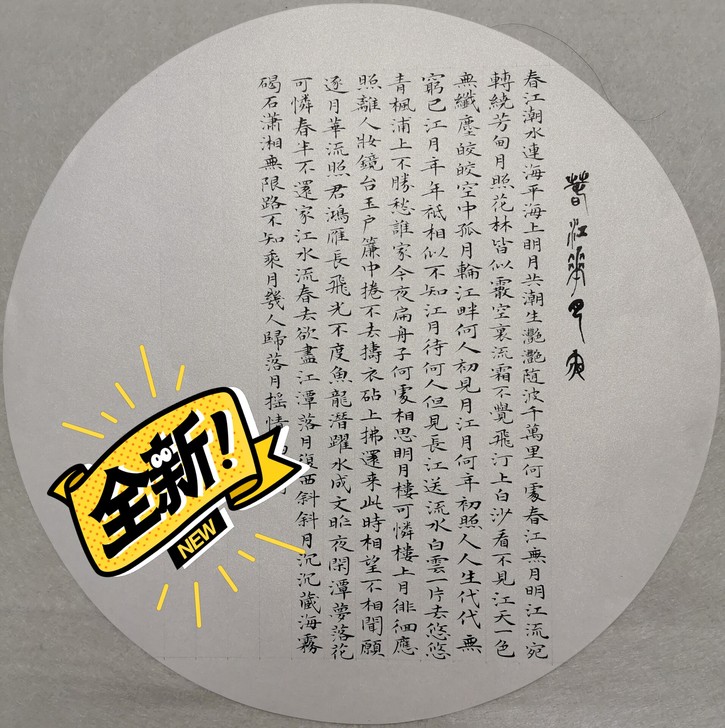 春江華月夜
春江潮水連海平海上明月共潮生灩灩随波千萬里何處春江無月明江流宛
轉繞芳甸月照花林皆似霰空裏流霜不覺飛汀上白沙看不見江天一色
無纖塵皎皎空中孤月輪江畔何人初見月江月何年初照人人生代代無
窮已江月年年祗相似不知江月待何人但見長江送流水白雲一片去悠悠
青楓浦上不勝愁誰家今夜扁舟子何處相思明月樓可憐樓上月徘徊應
照離人妝鏡台玉戶簾中捲不去擣衣砧上拂還来此時相望不相聞願
逐月華流照君鴻雁長飛光不度魚龍潛躍水成文昨夜閑潭夢落花
可憐春半不還家江水流春去欲盡江潭落月復西斜斜月沉沉藏海霧
碣石瀟湘無限路不知乘月幾人歸落月搖情
全新!
NEW